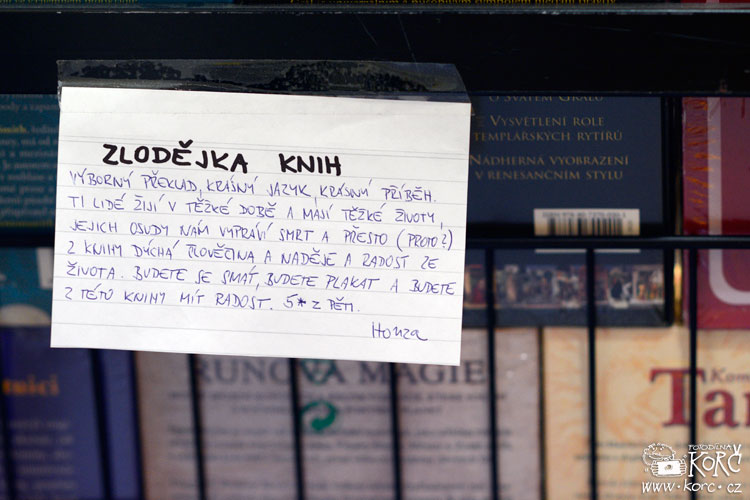 ZLODĚJKA KNIH
VÝBORNÝ PŘEKLAD, KRÁSNÝ JAZYK, KRÁSNÝ PŘÍBĚH.
TI LIDÉ ŽIJÍ V TĚŽKÉ DOBĚ A MAJÍ TĚŽKÉ ŽIVOTY,
JEJICH OSUDY NÁM VYPRÁVÍ SMRT A PŘESTO (PROTO?)
Z KNIHY DÝCHÁ ČLOVĚČINA A NADĚJE A RADOST ZE
ŽIVOTA. BUDETE SE SMÁT, BUDETE PLAKAT A BUDETE
Z TÉTO KNIHY MÍT RADOST. 5* Z PĚTI.
Honza
O SVATÉM GRÁLU
VYSVĚTLENÍ ROLE
TEMPLÁŘSKÝCH RYTÍŘŮ
NÁDHERNÁ VYOBRAZENÍ
V RENESANČNÍM STYLU
RUNOVÁ MAGIE
FOTODÍLNA
KORČ
www.korc.cz